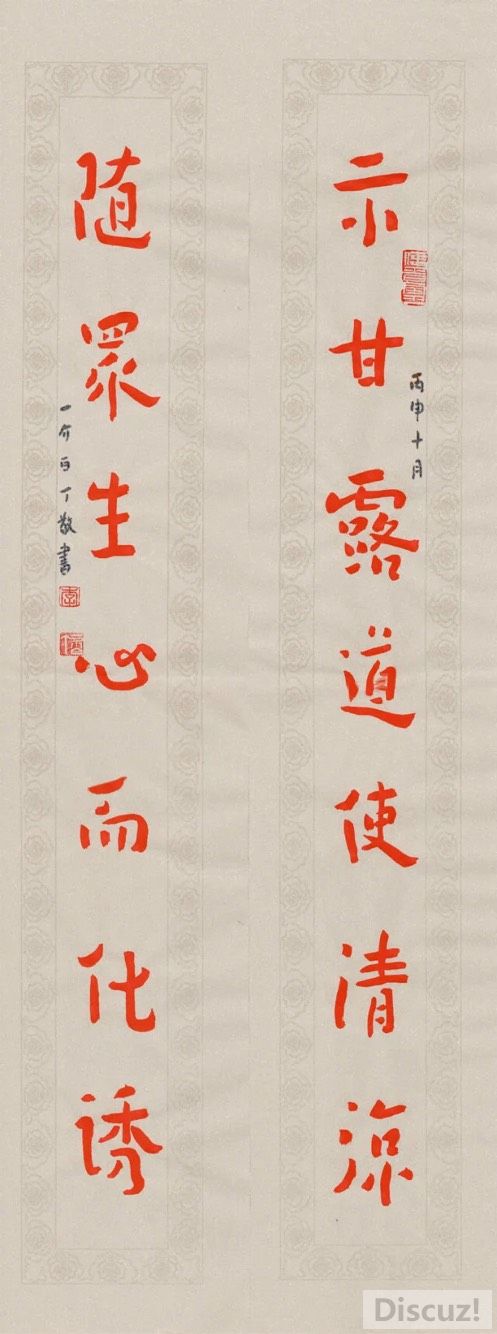 示甘露道使清涼
丙申十月
随眾生心而化誘
一介白丁敬書
Discuz!